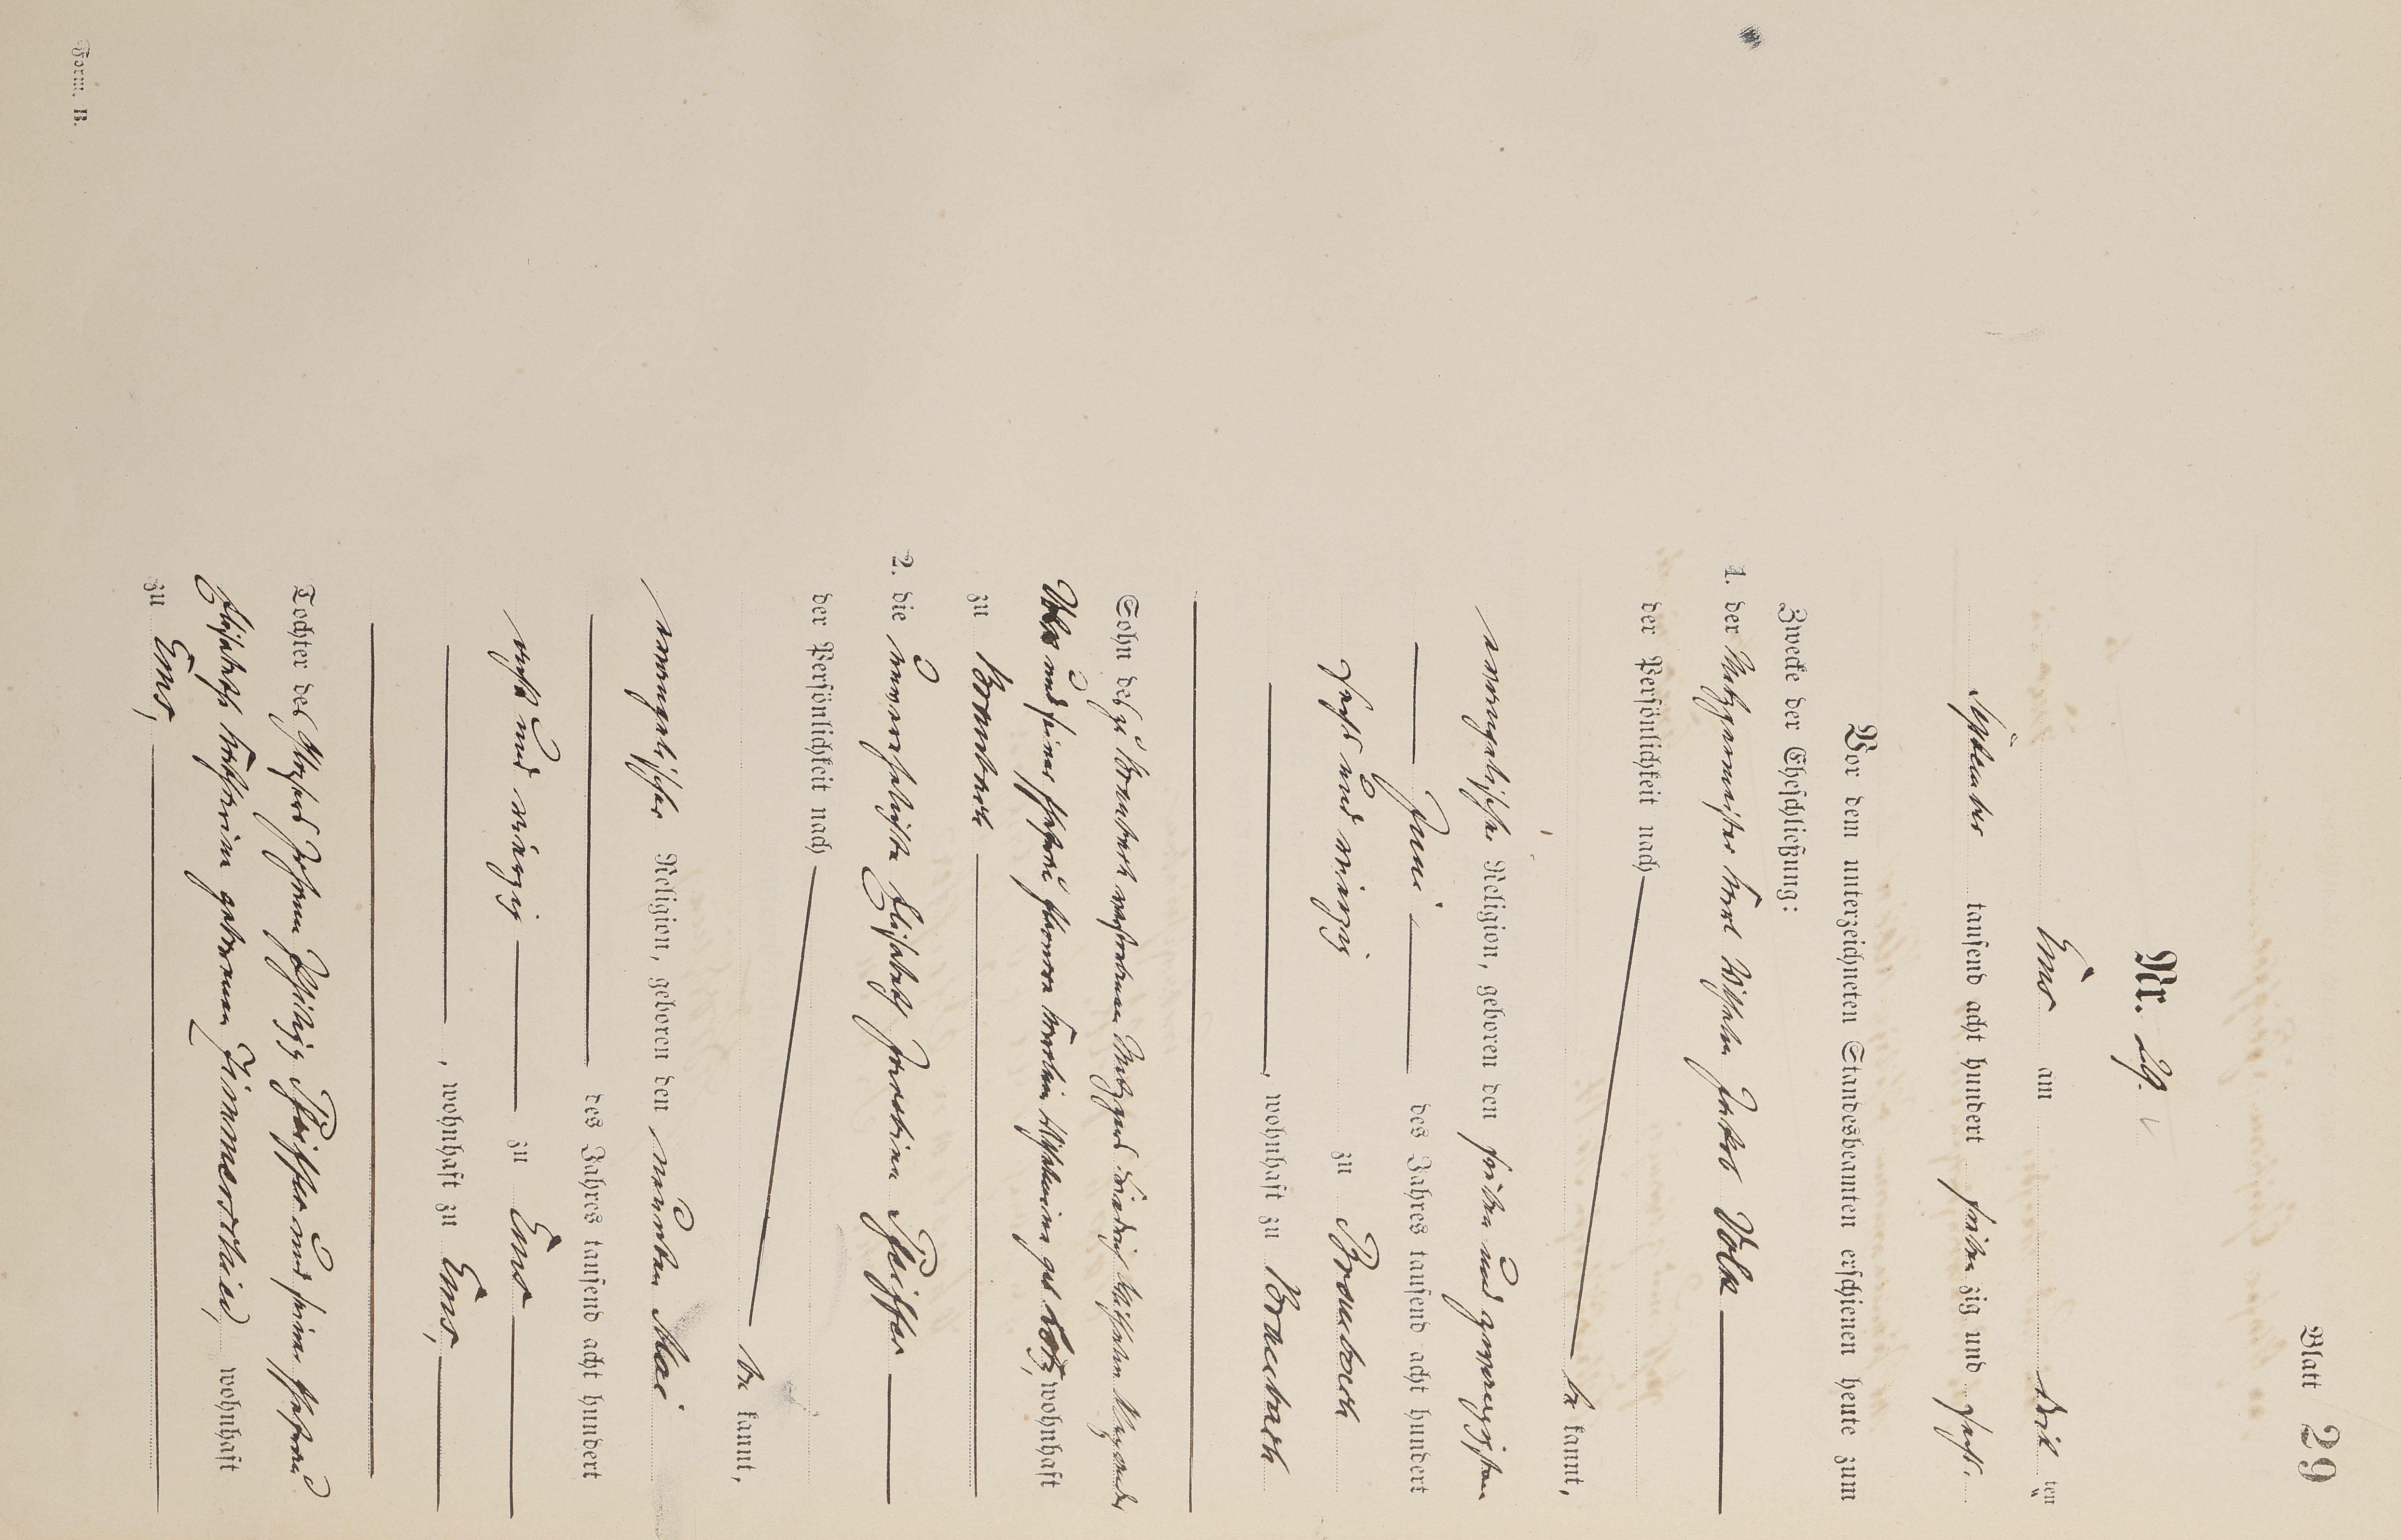 Blatt 29
Nr. 29.
Ems am Drit ten
September tausend acht hundert sieben zig und sechs.
Vor dem unterzeichneten Standesbeamten erschienen heute zum
Zwecke der Eheschließung:
1. der Metzgermeister Karl Wilhelm Jakob Volk
der Persönlichkeit nach
be kannt,
evangelischer Religion, geboren den sieben und zwanzigsten
Juni des Jahres tausend acht hundert
sechs und vierzig zu Braubach
, wohnhaft zu Braubach
Sohn des zu Braubach verstorbenen Metzgers Friedrich Wilhelm
Volk und seiner Ehefrau Karolin Wilhelmina geb wohnhaft
zu Braubach
2. die unverehelichte Elisabeth Pfeiffer
der Persönlichkeit nach
be kannt,
evangelischer Religion, geboren den neunten Mai
des Jahres tausend acht hundert
acht und vierzig zu Ems
, wohnhaft zu Ems,
Tochter des Johann Philipp Pfeiffer und seiner Ehefrau
Elisabeth Katharina geborenen Zimmerschied, wohnhaft
zu Ems,
Form. B.